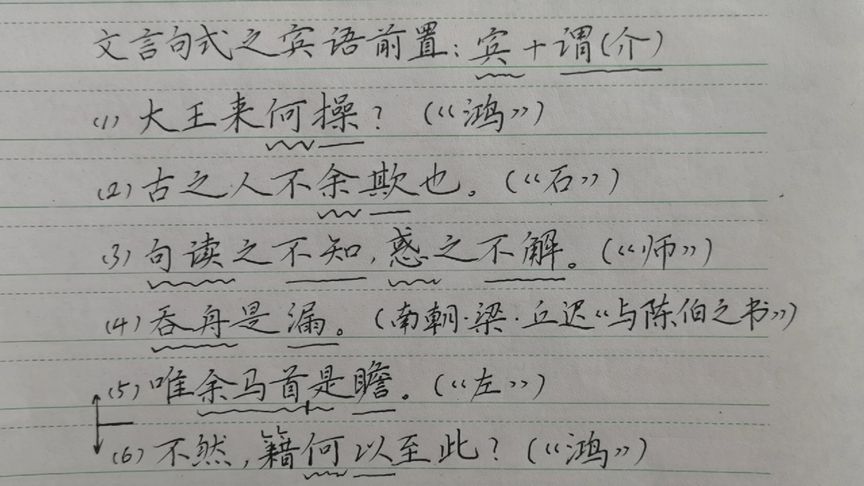 文言句式之宾语前置:宾+谓(介)
(1)大王来何操?(《鸿》)
(2)古之人不余欺也。(《石》)
(3)句读之不知,惑之不解。(《师》)
(4)吞舟是漏。(南朝·梁·丘迟《与陈伯之书》)
(5)唯余马首是瞻。(《左》)
(6)不然,籍何以至此?(《鸿》)